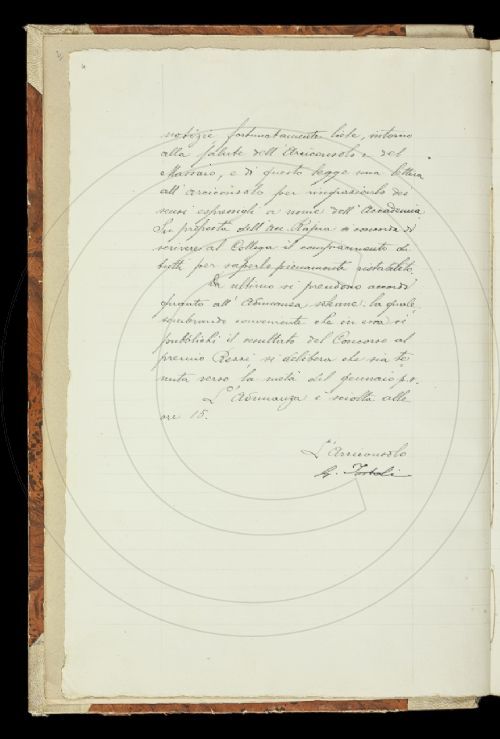 notizie fortunatamente liete, intorno
alla salute dell'Arciconsolo e del
Massaio, e di questo legge una lettera
all'arciconsolo per ringraziarlo dei
sensi espressigli a nome dell'Accademia.
Su proposta dell'acc. Rajna si concorda di
scrivere al Collega il compiacimento di
tutti per saperlo pienamente ristabilito.
Da ultimo si prendono accordi
quanto all'Adunanza solenne la quale
sembrando conveniente che in essa si
pubblichi il resultato del Concorso al
premio Rezzi si delibera che sia te-
nuta verso la metà del gennaio p.v.
L'Adunanza è sciolta alle
ore 15.
L'Arciconsolo
G. Tortoli